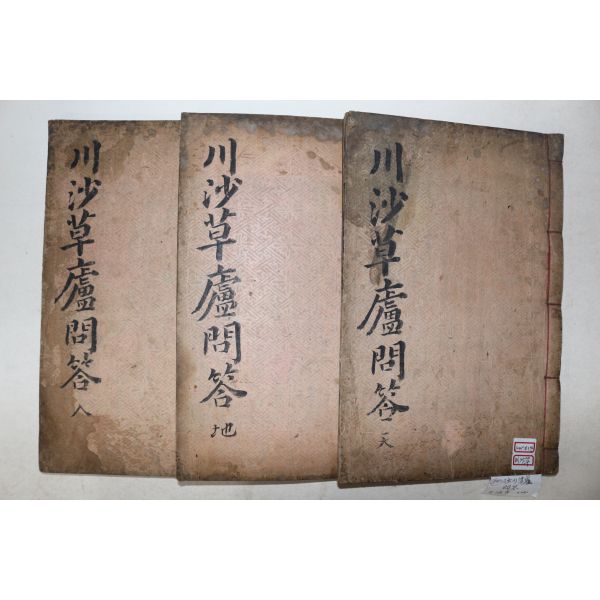 川沙草廬問答 天
川沙草廬問答 地
川沙草廬問答 人